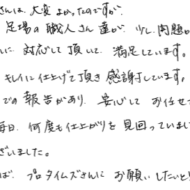 さんは、大変よかったのですが、
足場の職人さん達が、少し問題が
に対応して頂いて、満足しています。
もしくに仕上げて頂き感謝しています。
での報告があり、安心してお任せ
毎日、何度も仕上がりを見回っていまい
ざいました。
ば、プロタイムズさんにお願いしたいと